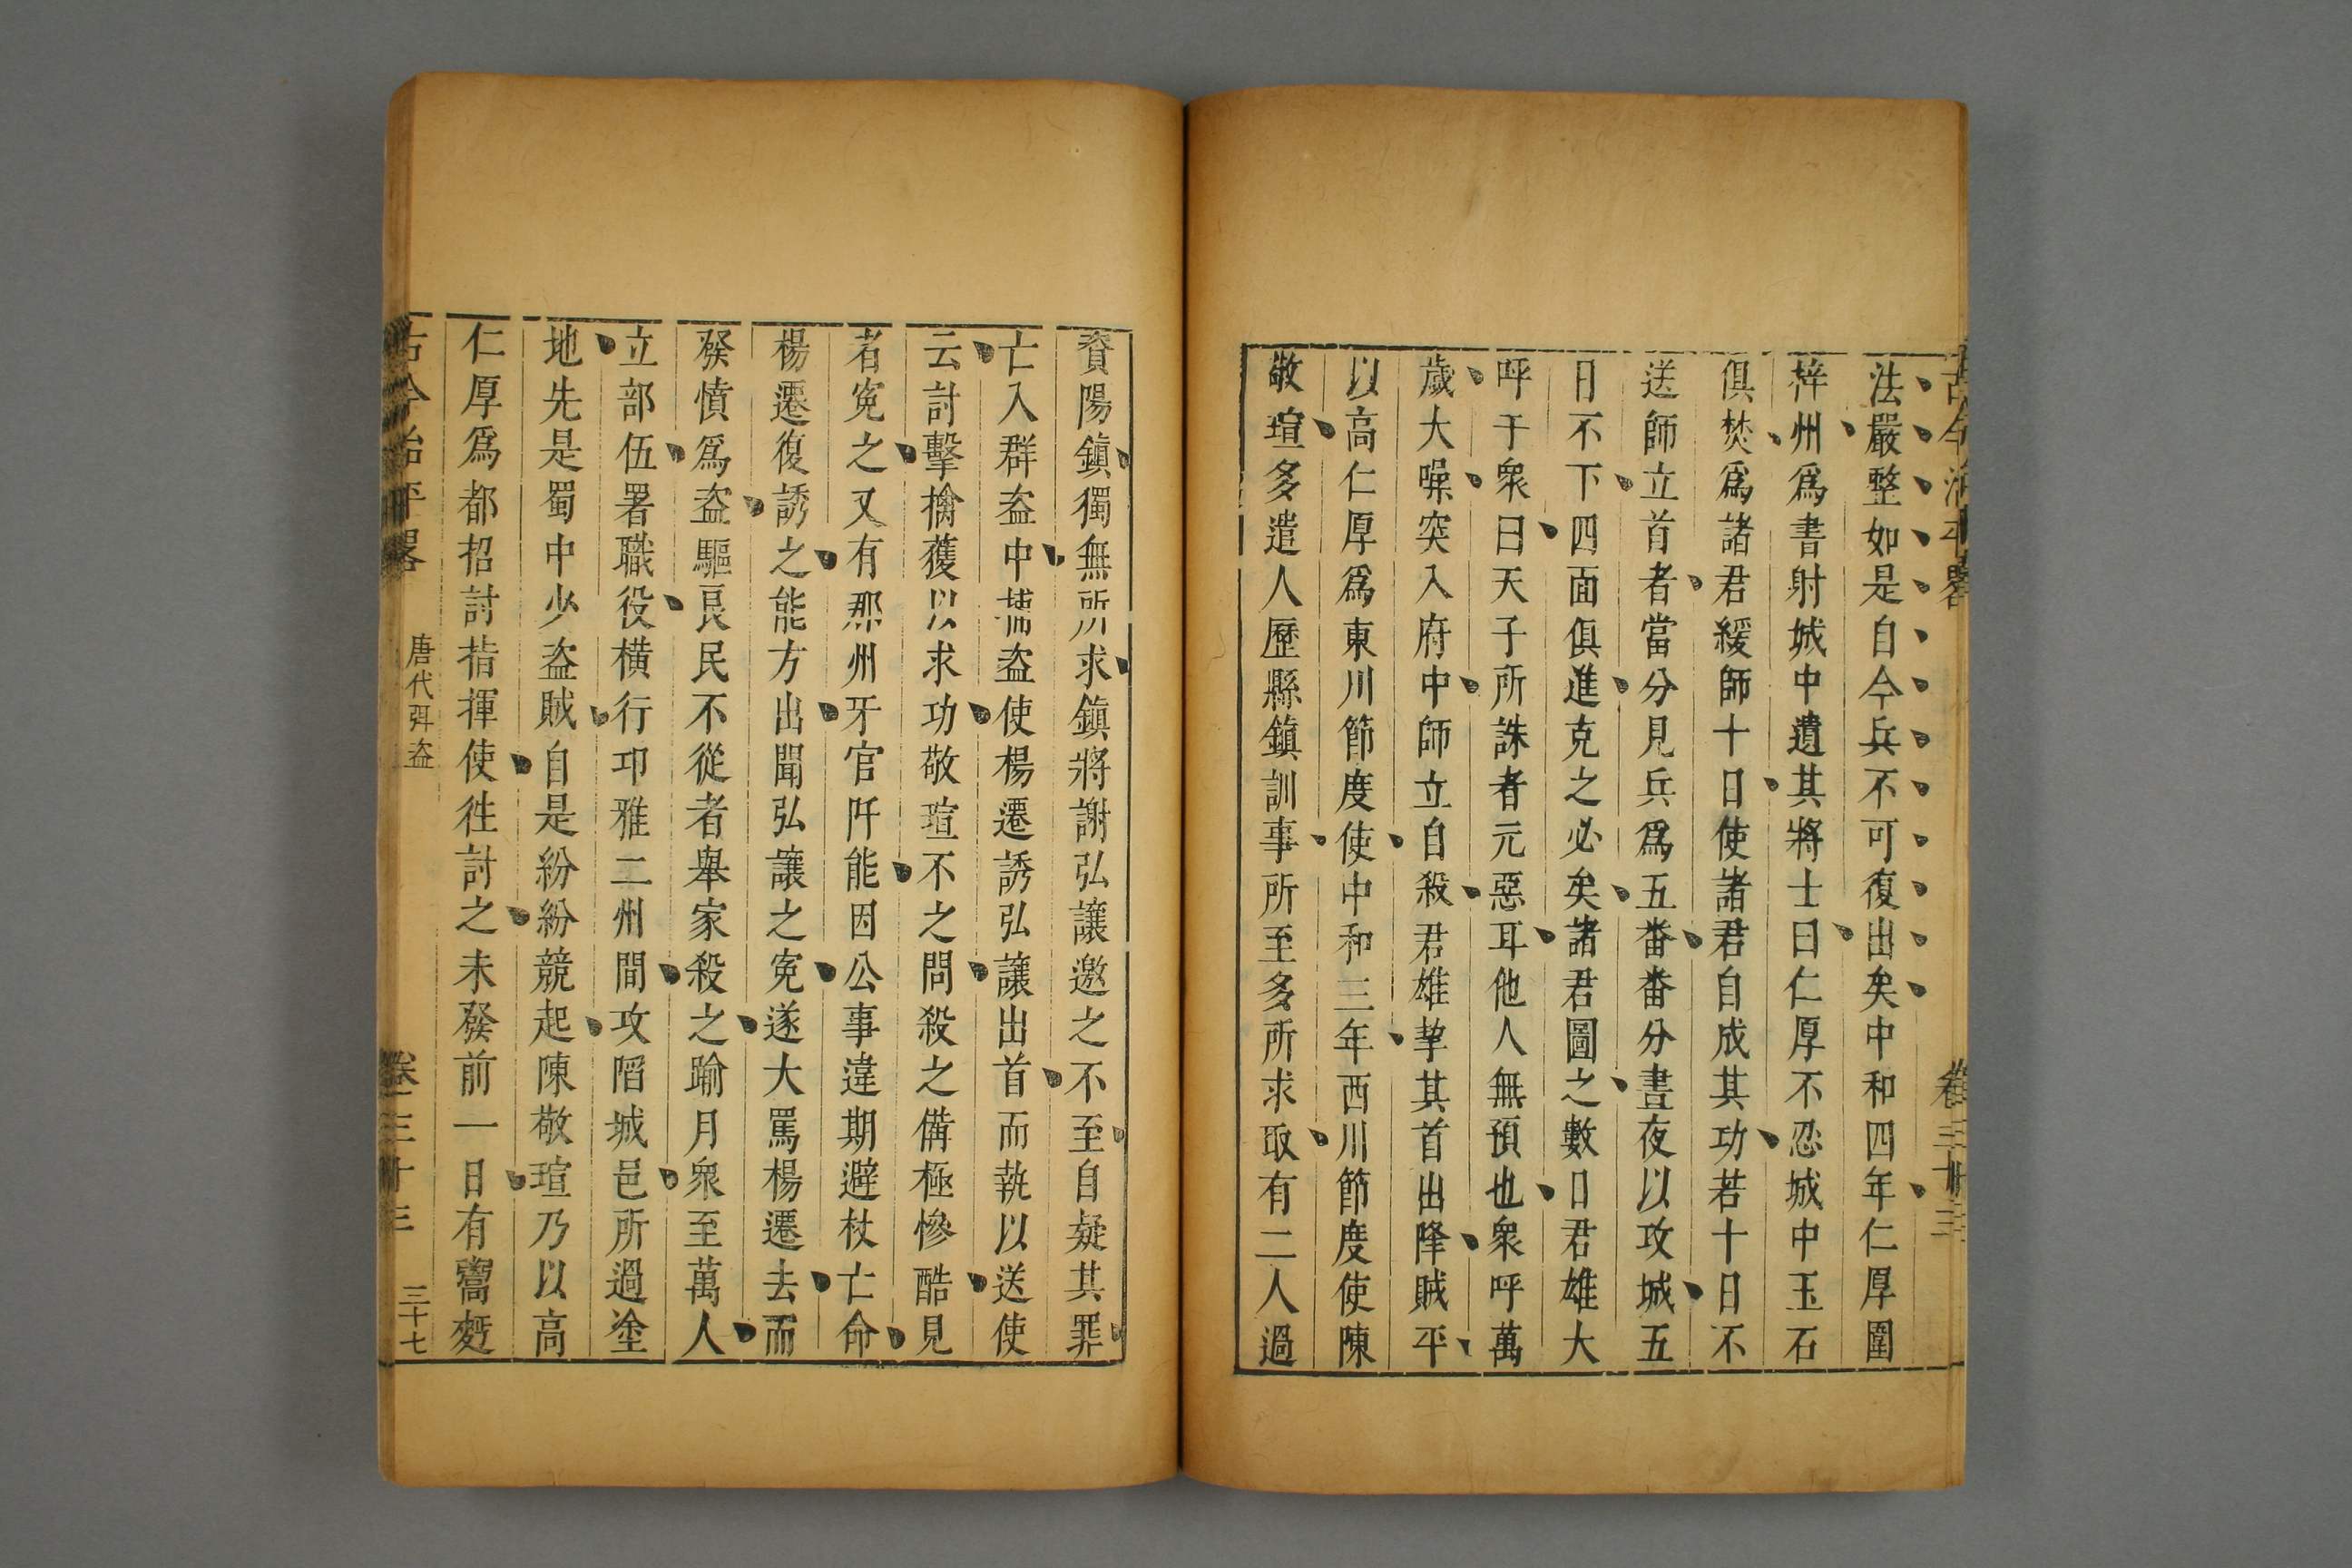 古今治平畧 卷三十三
法嚴整如是自今兵不可復出矣中和四年仁厚圍
梓州爲書射城中遺其將士曰仁厚不忍城中玉石
俱焚爲諸君緩師十日使諸君自成其功若十日不
送師立首者當分見兵爲五畨畨分晝夜以攻城五
日不下四面俱進克之必矣諸君圖之數日君雄大
呼于衆曰天子所誅者元惡耳他人無預也衆呼萬
歲大噪突入府中師立自殺君雄挈其首出降賊平
以高仁厚爲東川節度使中和三年西川節度使陳
敬瑄多遣人歷縣鎮訓事所至多所求取有二人過
資陽鎮獨無所求鎮將謝弘讓邀之不至自疑其罪
亡入群盗中捕盗使楊遷誘弘讓出首而執以送使
云討擊擒獲以求功敬瑄不之問殺之備極慘酷見
者寃之又有那州牙官阡能因公事違期避杖亡命
楊遷復誘之能方出聞弘讓之寃遂大罵楊遷去而
發憤爲盗驅良民不從者舉家殺之踰月衆至萬人
立部伍署職役橫行卭雅二州間攻䧟城邑所過塗
地先是蜀中少盗賊自是紛紛競起陳敬瑄乃以高
仁厚爲都招討指揮使徃討之未發前一日有鬻麪
古今治平畧 唐代弭盗 卷三十三 三十七